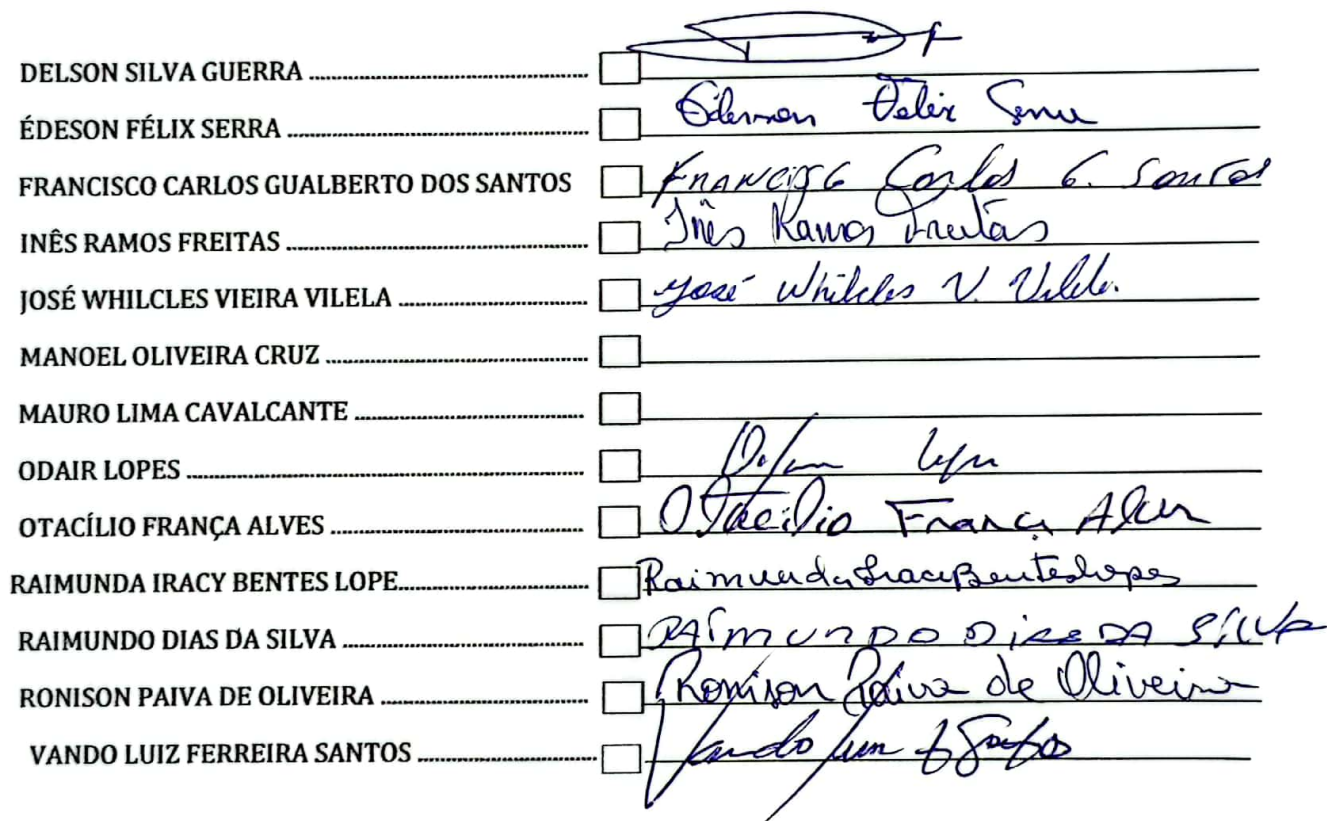 DELSON SILVA GUERRA
ÉDESON FÉLIX SERRA Félix
FRANCISCO CARLOS GUALBERTO DOS SANTOS Carlos G. Santos
INÊS RAMOS FREITAS Inês Ramos Freitas
JOSÉ WHILCLES VIEIRA VILELA José Whilcles V.
MANOEL OLIVEIRA CRUZ
MAURO LIMA CAVALCANTE
ODAIR LOPES
OTACÍLIO FRANÇA ALVES Otacílio França
RAIMUNDA IRACY BENTES LOPE Raimunda Iracy Bentes Lopes
RAIMUNDO DIAS DA SILVA RAIMUNDO DIAS DA SILVA
RONISON PAIVA DE OLIVEIRA Ronison Paiva de Oliveira
VANDO LUIZ FERREIRA SANTOS Vando Santos